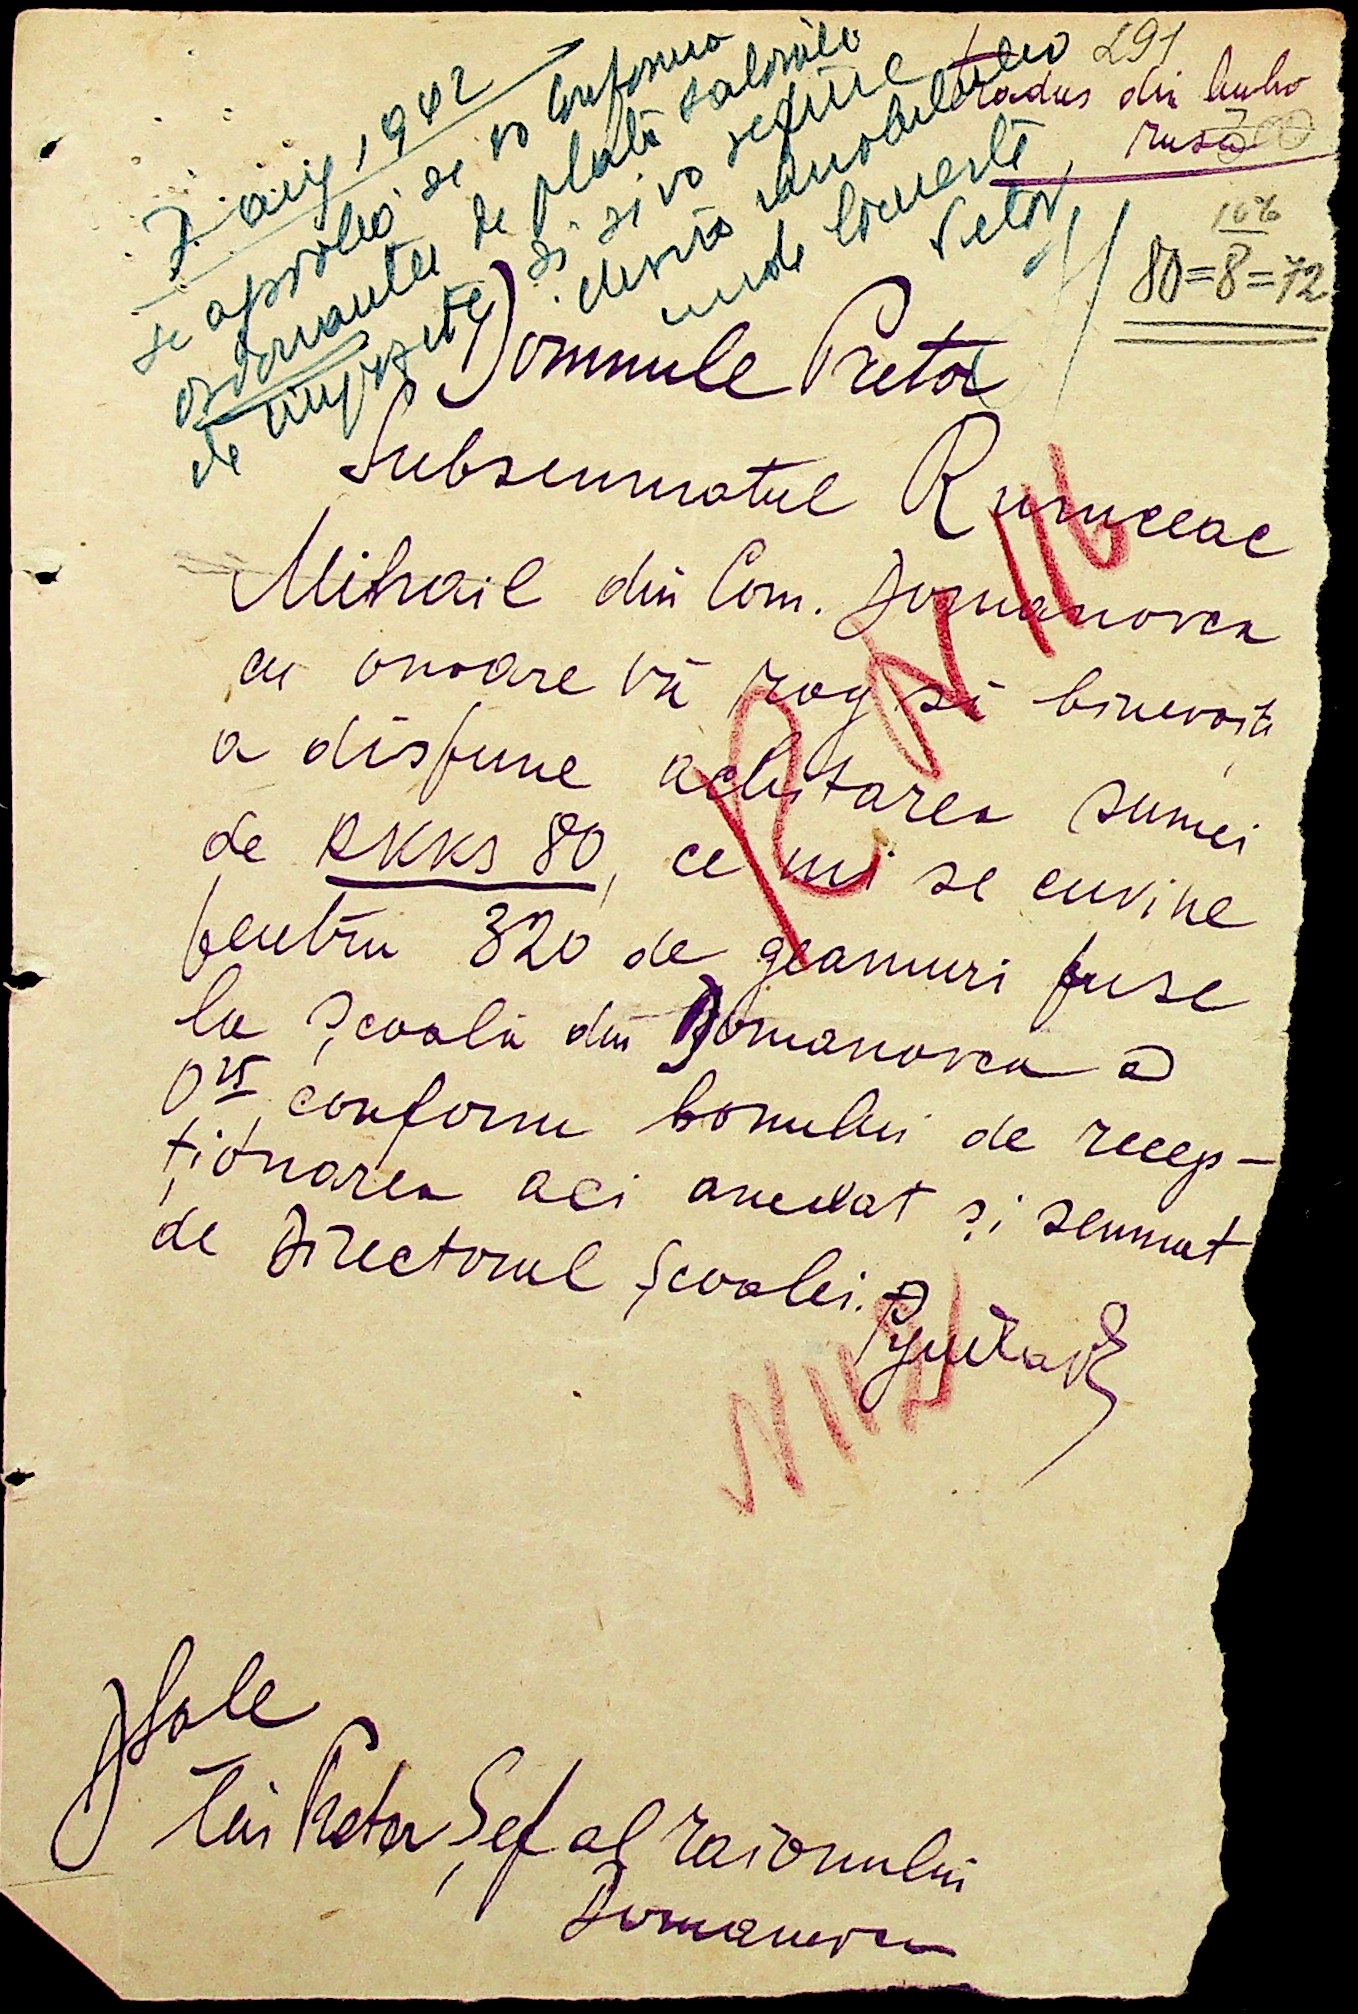 291
Tradus din limba
rusă
300
7 aug 1942
se aprobă se va conforma
ordonantei de plată salariile
de și si va reține
chiria imobilului
unde locuește
Pretor,
10%
80=8=72
Domnule Pretor
Subsemnatul
Mihail din Com. Domanovca
cu onoare vă rog să binevoiți
a dispune achitarea sumei
de RKKS 80, ce mi se cuvine
pentru 320 de geamuri puse
la școala din Domanovca a
0 25 conform bonului de recep-
ționarea aci anexat și semnat
de Directorul Școalei.
R N 116
N 112
D-sale
D-lui Pretor Șef al raionului
Domanovca